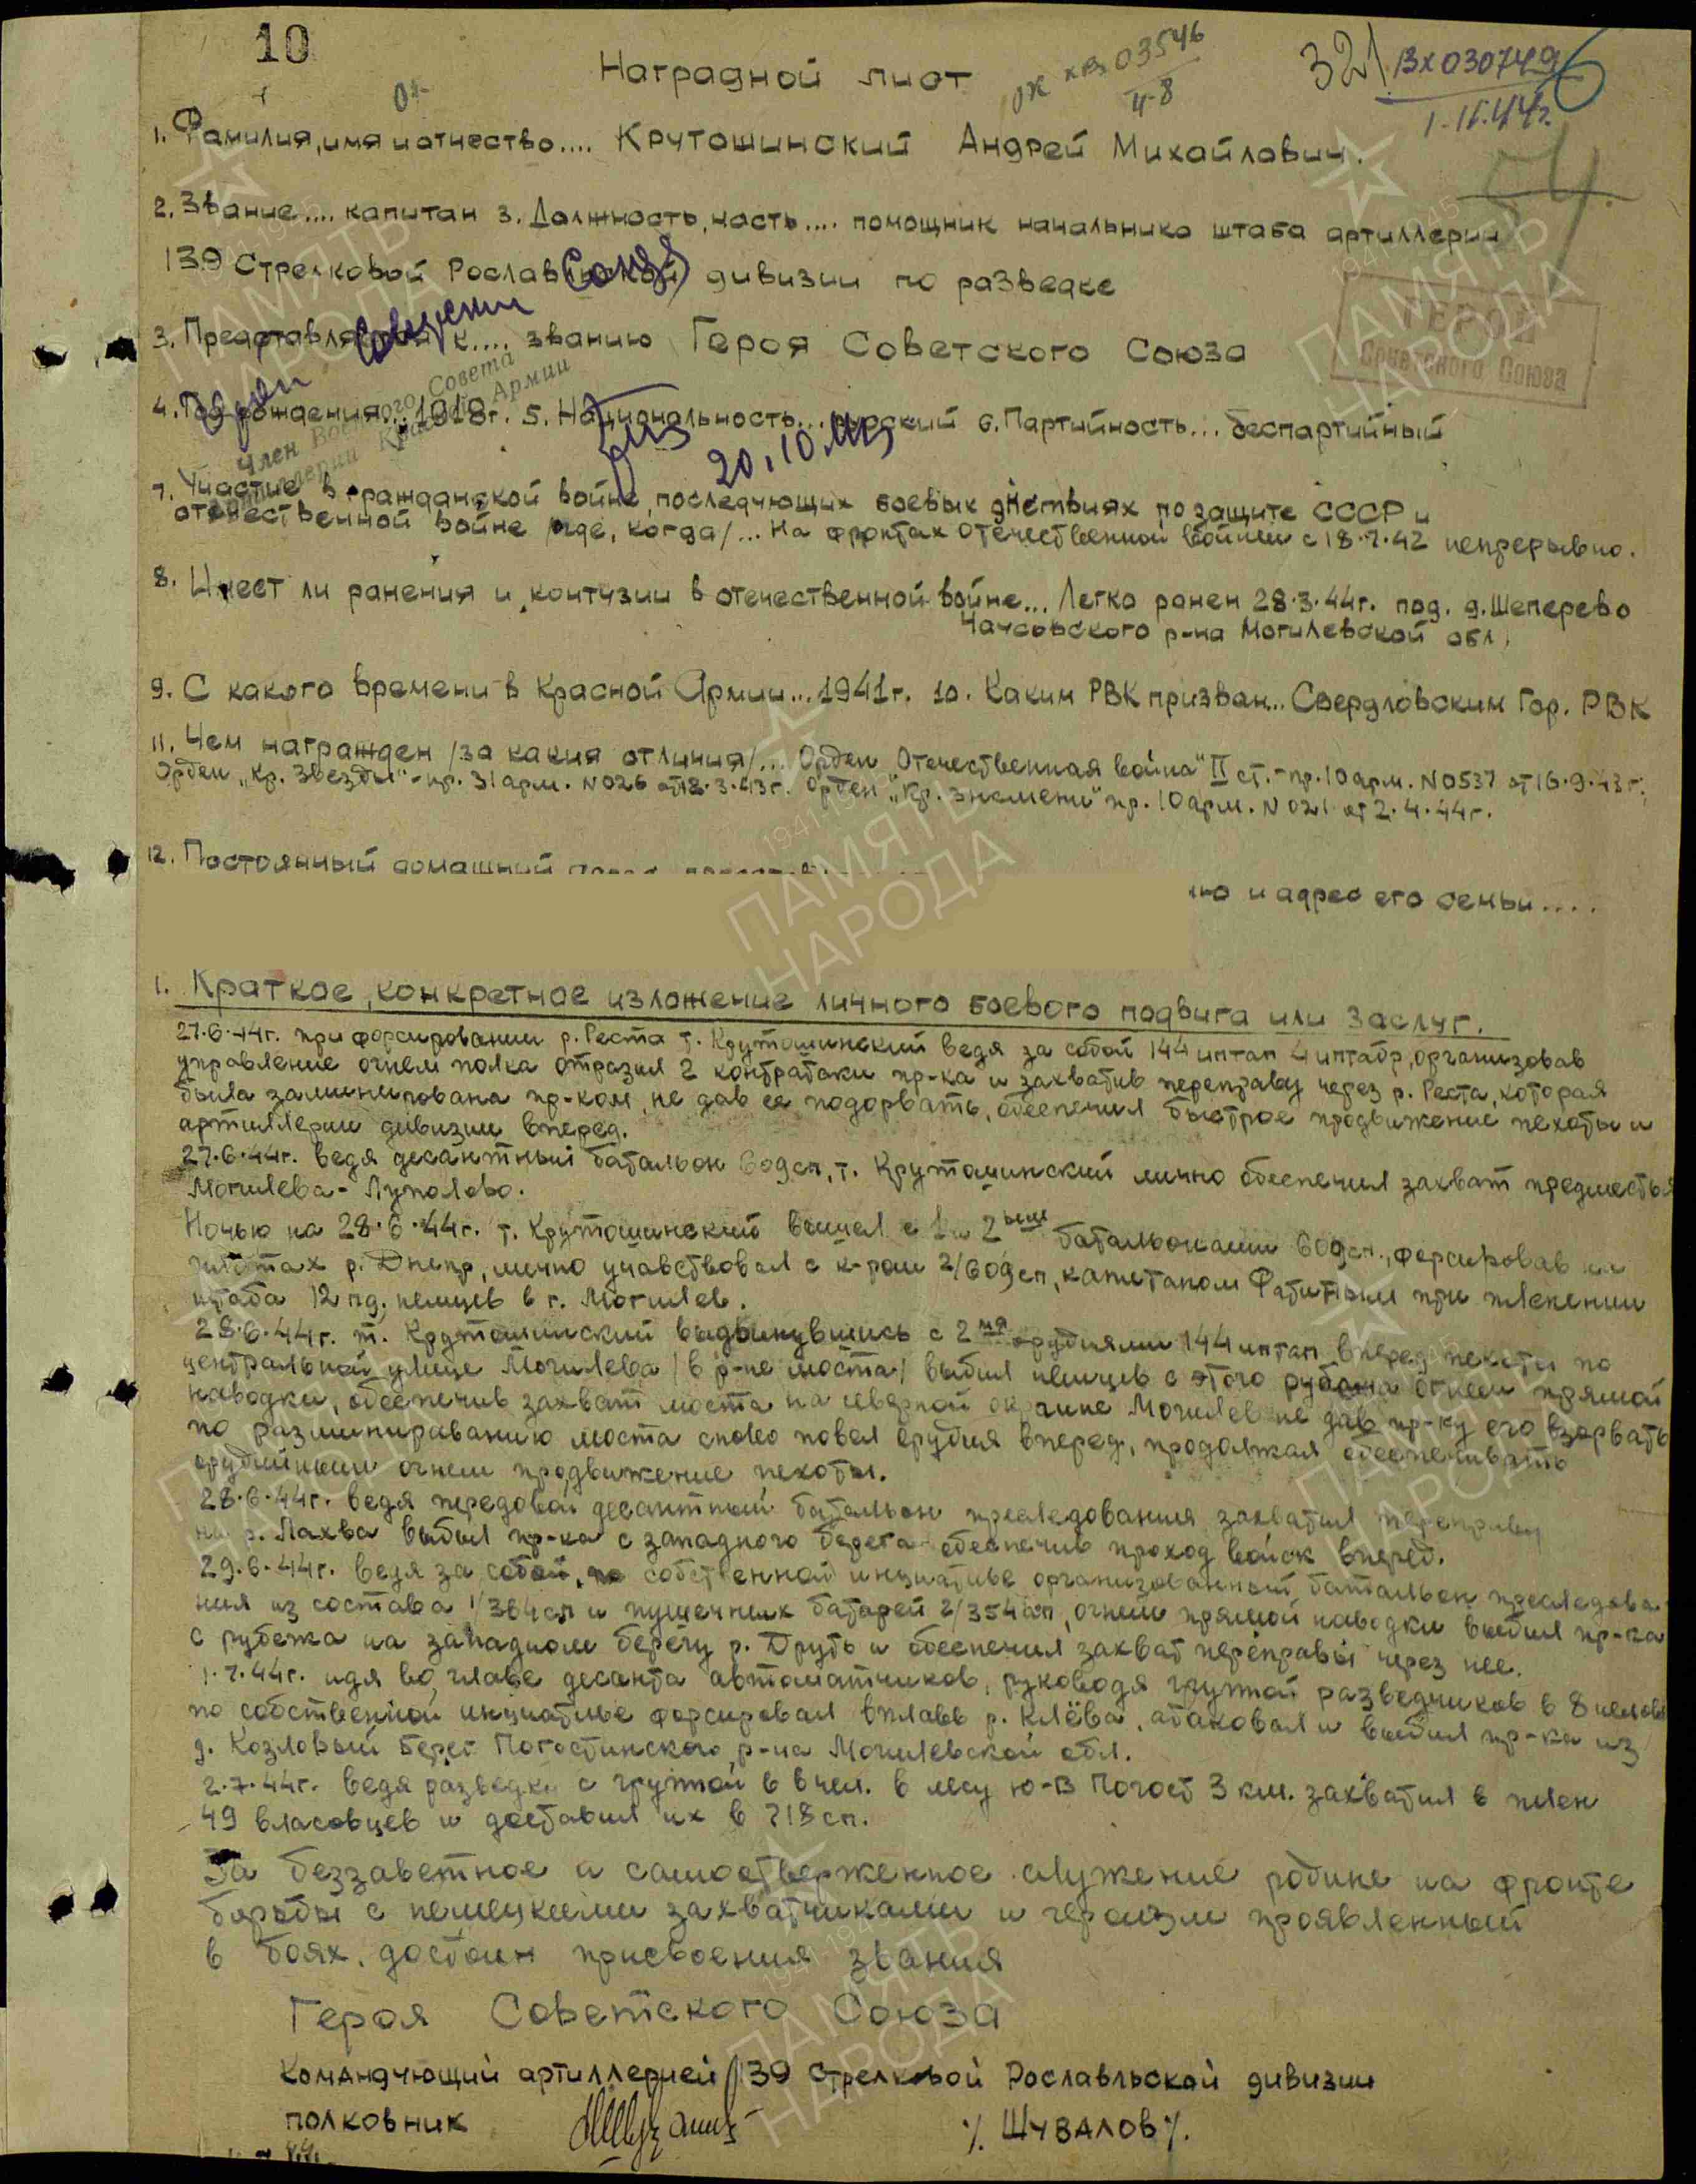 10
Наградной лист
ож
хвз 03546
4-8
321
Вх 030749
1.11.44г.
1. Фамилия, имя и отчество.... Крутошинский Андрей Михайлович.
2. Звание.... капитан 3. Должность, часть.... помощник начальника штаба артиллерии
139 Стрелковой Рославльской дивизии по разведке
3. Представляется к.... званию Героя Советского Союза
ГЕРОЙ
Советского Союза
Герой Советск. Союза
Член Военного Совета
артиллерии Красной Армии
20.10.44
4. Год рождения... 1918г. 5. Национальность... русский 6. Партийность... беспартийный
7. Участие в гражданской войне, последующих боевых действиях по защите СССР и
отечественной войне /где, когда/... На фронтах Отечественной войны с 18.7.42 непрерывно.
8. Имеет ли ранения и контузии в отечественной войне... Легко ранен 28.3.44г. под. д. Шеперево
Чаусовского р-на Могилевской обл.
9. С какого времени в Красной Армии... 1941г. 10. Каким РВК призван... Свердловским Гор. РВК
11. Чем награжден /за какия отличия/... Орден „Отечественная война" II ст. - пр. 10 арм. N0537 от 16.9.43г.;
Орден „Кр. Звезды" - пр. 31 арм. N026 от 18.3.43г. Орден „Кр. знамени" пр. 10 арм. N021 от 2.4.44г.
12. Постоянный домашний
и адрес его семьи....
1. Краткое, конкретное изложение личного боевого подвига или заслуг.
27.6.44г. при форсировании р. Реста т. Крутошинский ведя за собой 144 иптап 4 иптабр, организовав
управление огнем полка отразил 2 контратаки пр-ка и захватив переправу через р. Реста, которая
была заминирована пр-ком, не дав ее подорвать, обеспечил быстрое продвижение пехоты и
артиллерии дивизии вперед.
27.6.44г. ведя десантный батальон 609сп, т. Крутошинский лично обеспечил захват предместья
Могилева - Луполово.
Ночью на 28.6.44г. т. Крутошинский вышел с 1 и 2 ым батальонами 609сп., форсировав на
плотах р. Днепр, лично учавствовал с к-ром 2/609сп, капитаном Фатиным при пленении
штаба 12 пд. немцев в г. Могилев.
28.6.44г. т. Крутошинский выдвинувшись с 2мя орудиями 144 иптап вперед пехоты по
центральной улице Могилева /в р-не моста/ выбил немцев с этого рубежа огнем прямой
наводки, обеспечив захват моста на северной окраине Могилев не дав пр-ку его взорвать
по разминированию моста снова повел орудия вперед, продолжая обеспечивать
орудийным огнем продвижение пехоты.
28.6.44г. ведя передовой десантный батальон преследования захватил переправу
на р. Лахва выбил пр-ка с западного берега обеспечив проход войск вперед.
29.6.44г. ведя за собой, по собственной инициативе организованный батальон преследова-
ния из состава 1/364сп и пушечных батарей 2/354ап, огнем прямой наводки выбил пр-ка
с рубежа на западном берегу р. Друть и обеспечил захват переправы через нее.
1.7.44г. идя во главе десанта автоматчиков, руководя группой разведчиков в 8 человек
по собственной инициативе форсировал вплавь р. Клёва, атаковал и выбил пр-ка из
д. Козловый Берег Погостинского р-на Могилевской обл.
2.7.44г. ведя разведку с группой в 6 чел. в лесу ю-в Погост 3 км. захватил в плен
49 власовцев и доставил их в 718сп.
За беззаветное и самоотверженное служение родине на фронте
борьбы с немецкими захватчиками и героизм проявленный
в боях, достоин присвоения звания
Героя Советского Союза
Командующий артиллерией 139 Стрелковой Рославльской дивизии
полковник /. ШУВАЛОВ /.
ПАМЯТЬ НАРОДА
1941-1945